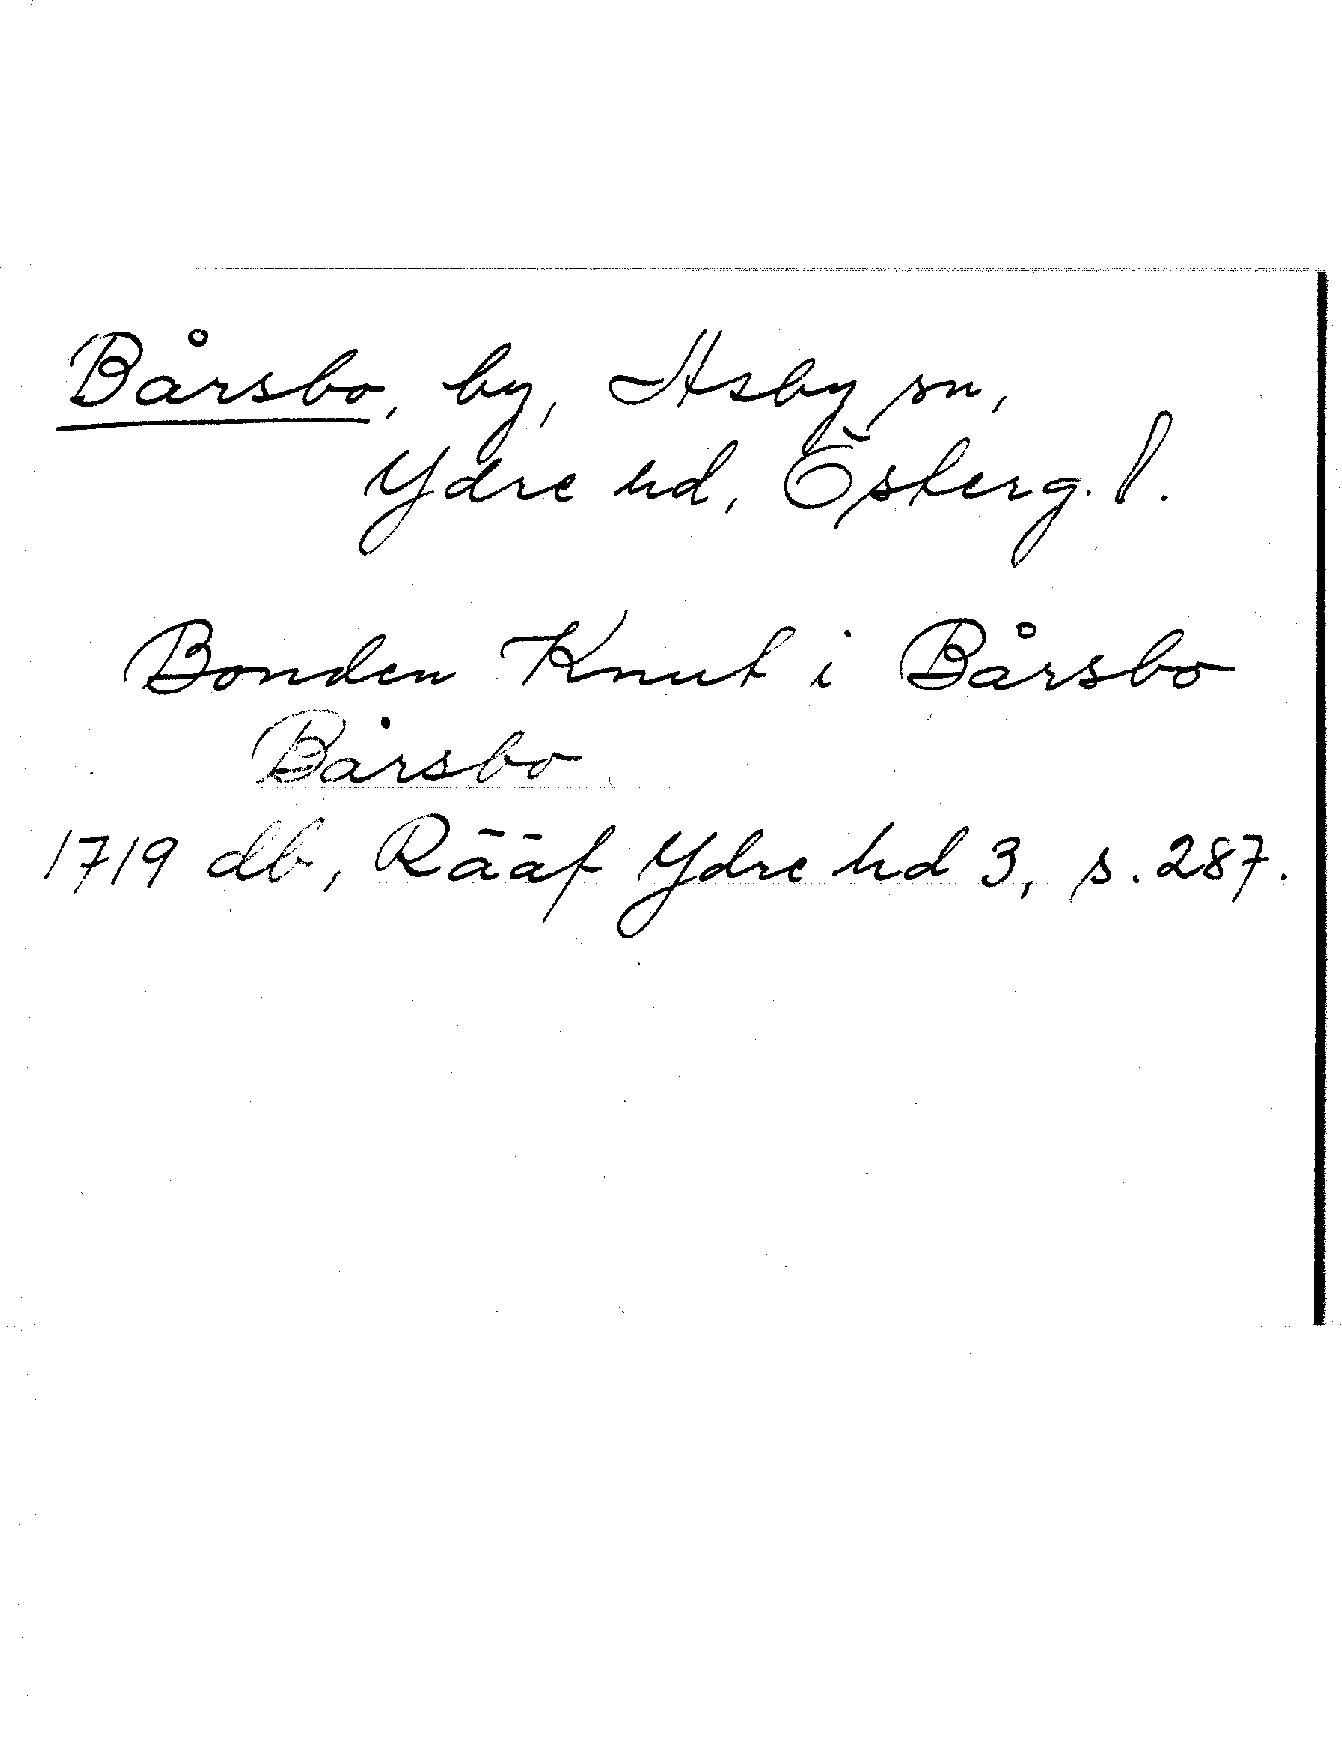 Bårsbo, by, Asby sn,
Ydre hd, Österg. l.
Bonden Knut i Bårsbo
Bårsbo
1719 db, Rääf Ydre hd 3, s. 287.